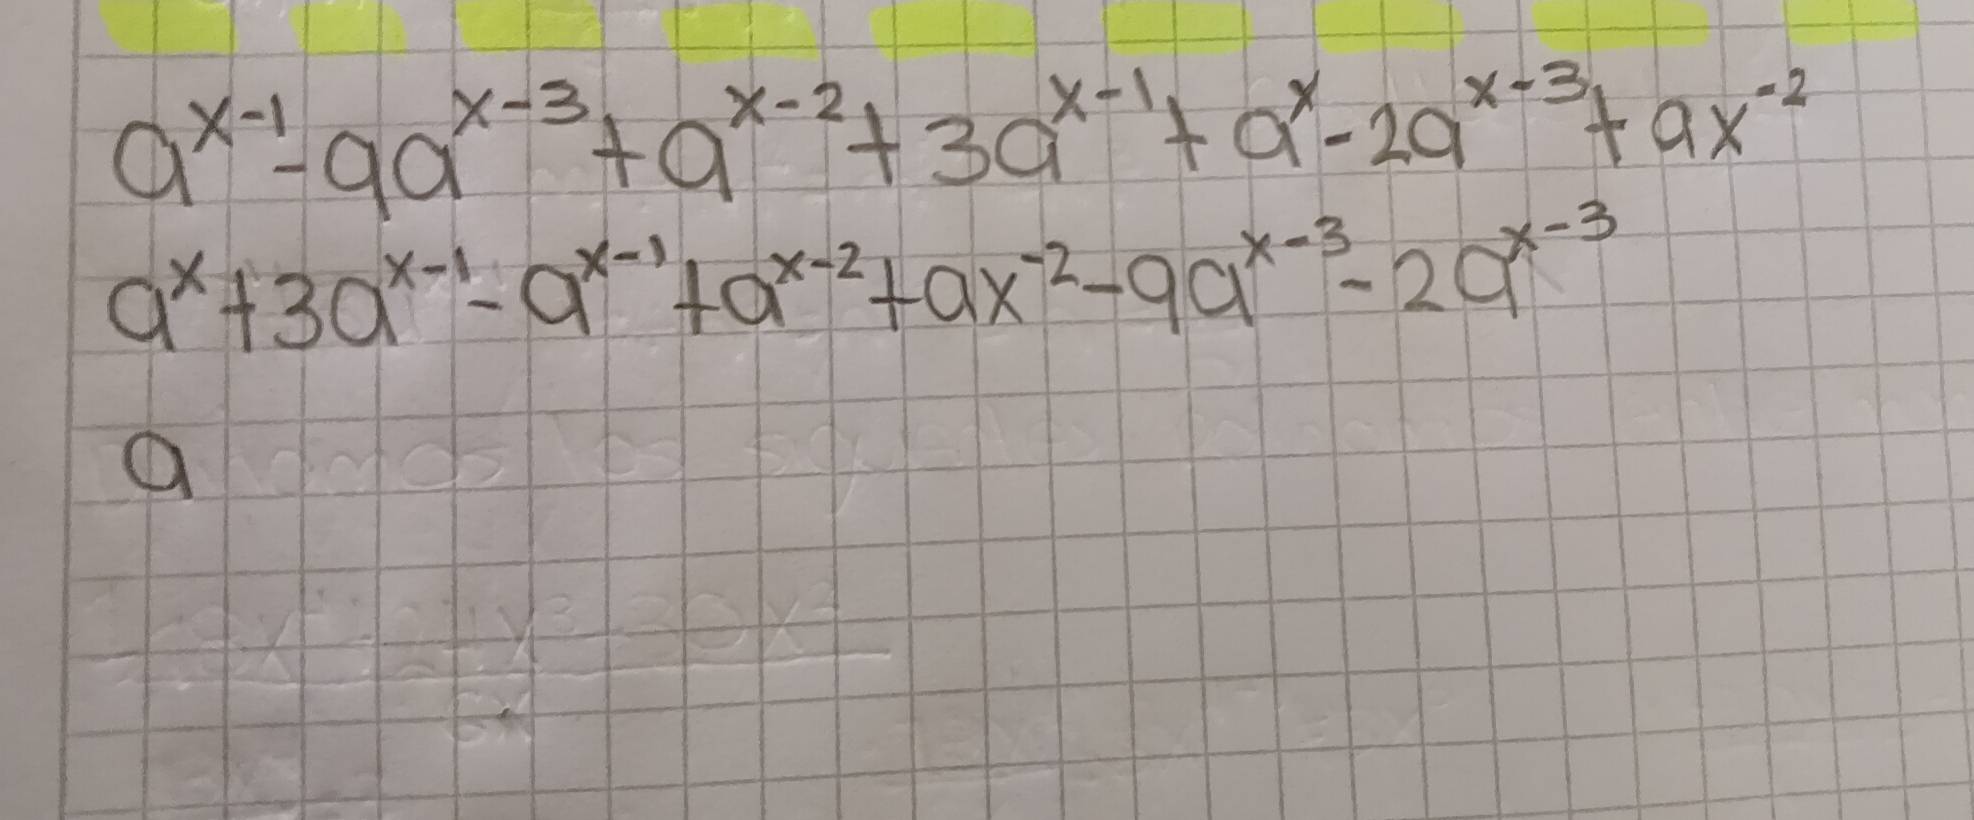 a^{x-1} - 9a^{x-3} + a^{x-2} + 3a^{x-1} + a^x - 2a^{x-3} + ax^{-2}
a^x + 3a^{x-1} - a^{x-1} + a^{x-2} + ax^{-2} - 9a^{x-3} - 2a^{x-3}
a